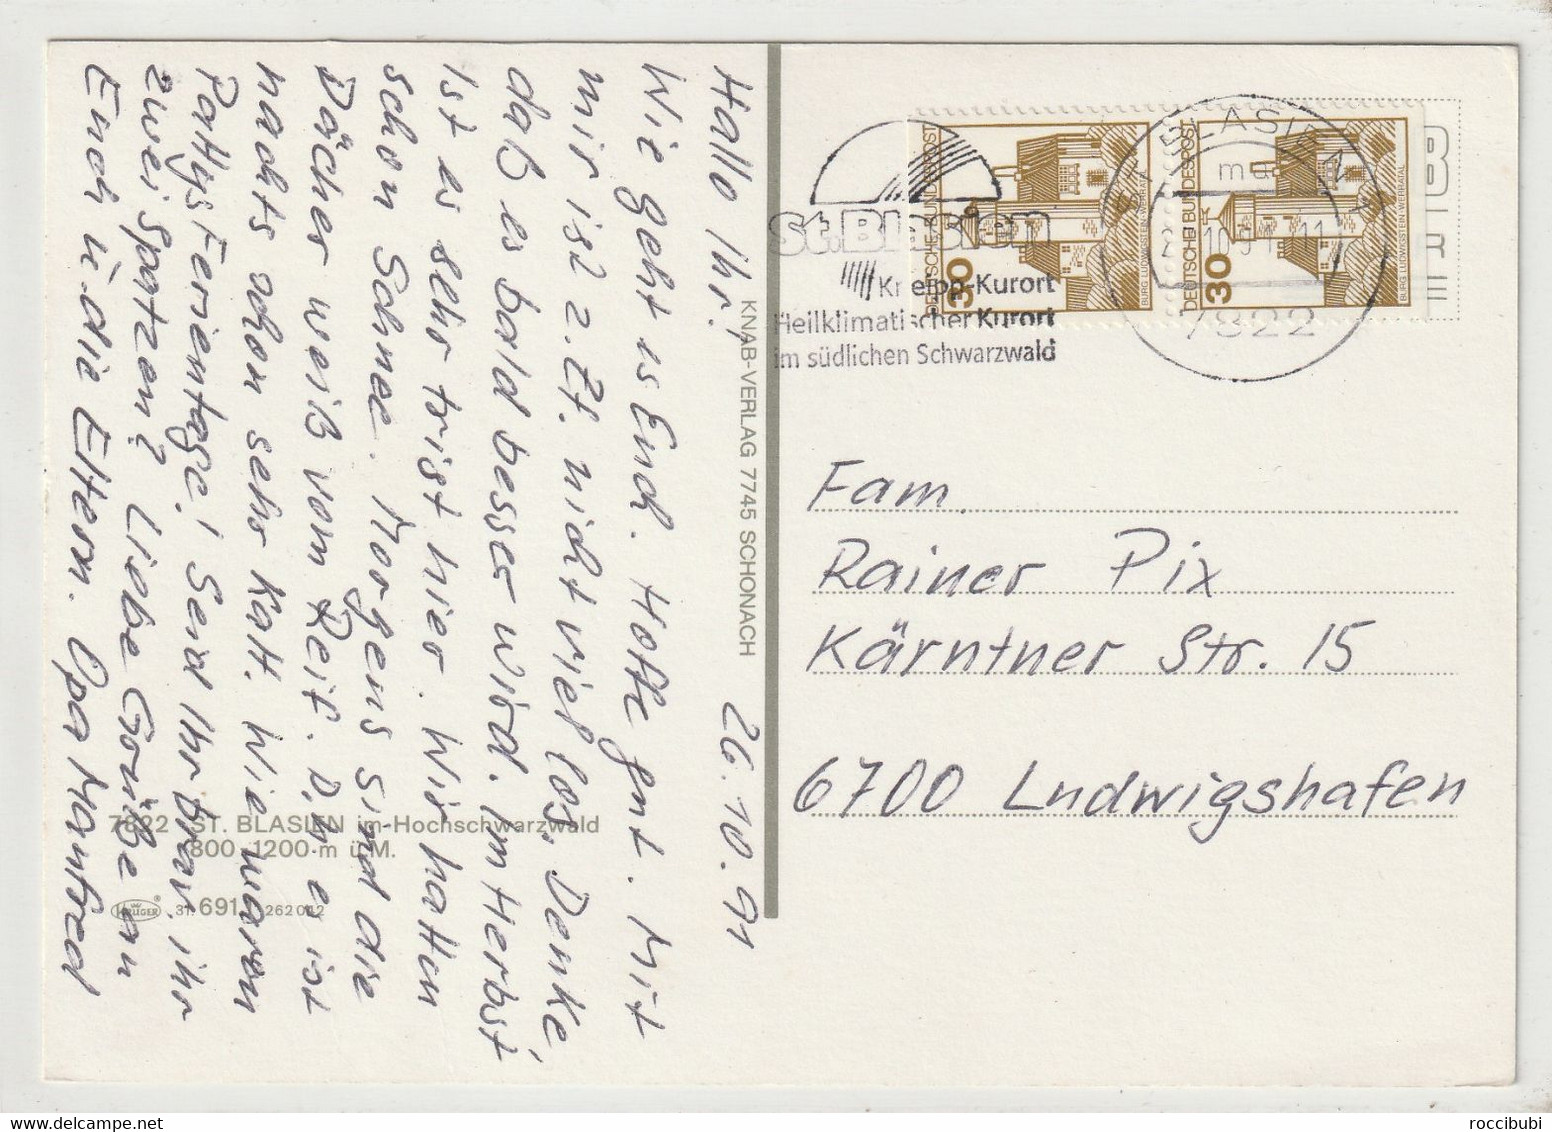 Hallo Ihr! 26.10.91
Wie geht es Euch. Hoffe gut. Mit
mir ist z.Zt. nicht viel los. Denke,
daß es bald besser wird. Im Herbst
ist es sehr trist hier. Wir hatten
schon Schnee. Morgens sind die
Dächer weiß vom Reif. D.h. es ist
nachts schon sehr kalt. Wie waren
Pattys Ferientage! Seid Ihr brav, ihr
zwei Spatzen? Liebe Grüße an
Euch u. die Eltern. Opa Manfred
KNAB-VERLAG 7745 SCHONACH
7822 ST. BLASIEN im Hochschwarzwald
800-1200 m ü.M.
KRÜGER
31.691
262 012
St. Blasien
Kneipp-Kurort
Heilklimatischer Kurort
im südlichen Schwarzwald
ST BLASIEN 1
7822
DEUTSCHE BUNDESPOST
30
BURG LUDWIGSTEIN·WERRATAL
DEUTSCHE BUNDESPOST
30
BURG LUDWIGSTEIN·WERRATAL
Fam.
Rainer Pix
Kärntner Str. 15
6700 Ludwigshafen
delcampe.net
roccibubi